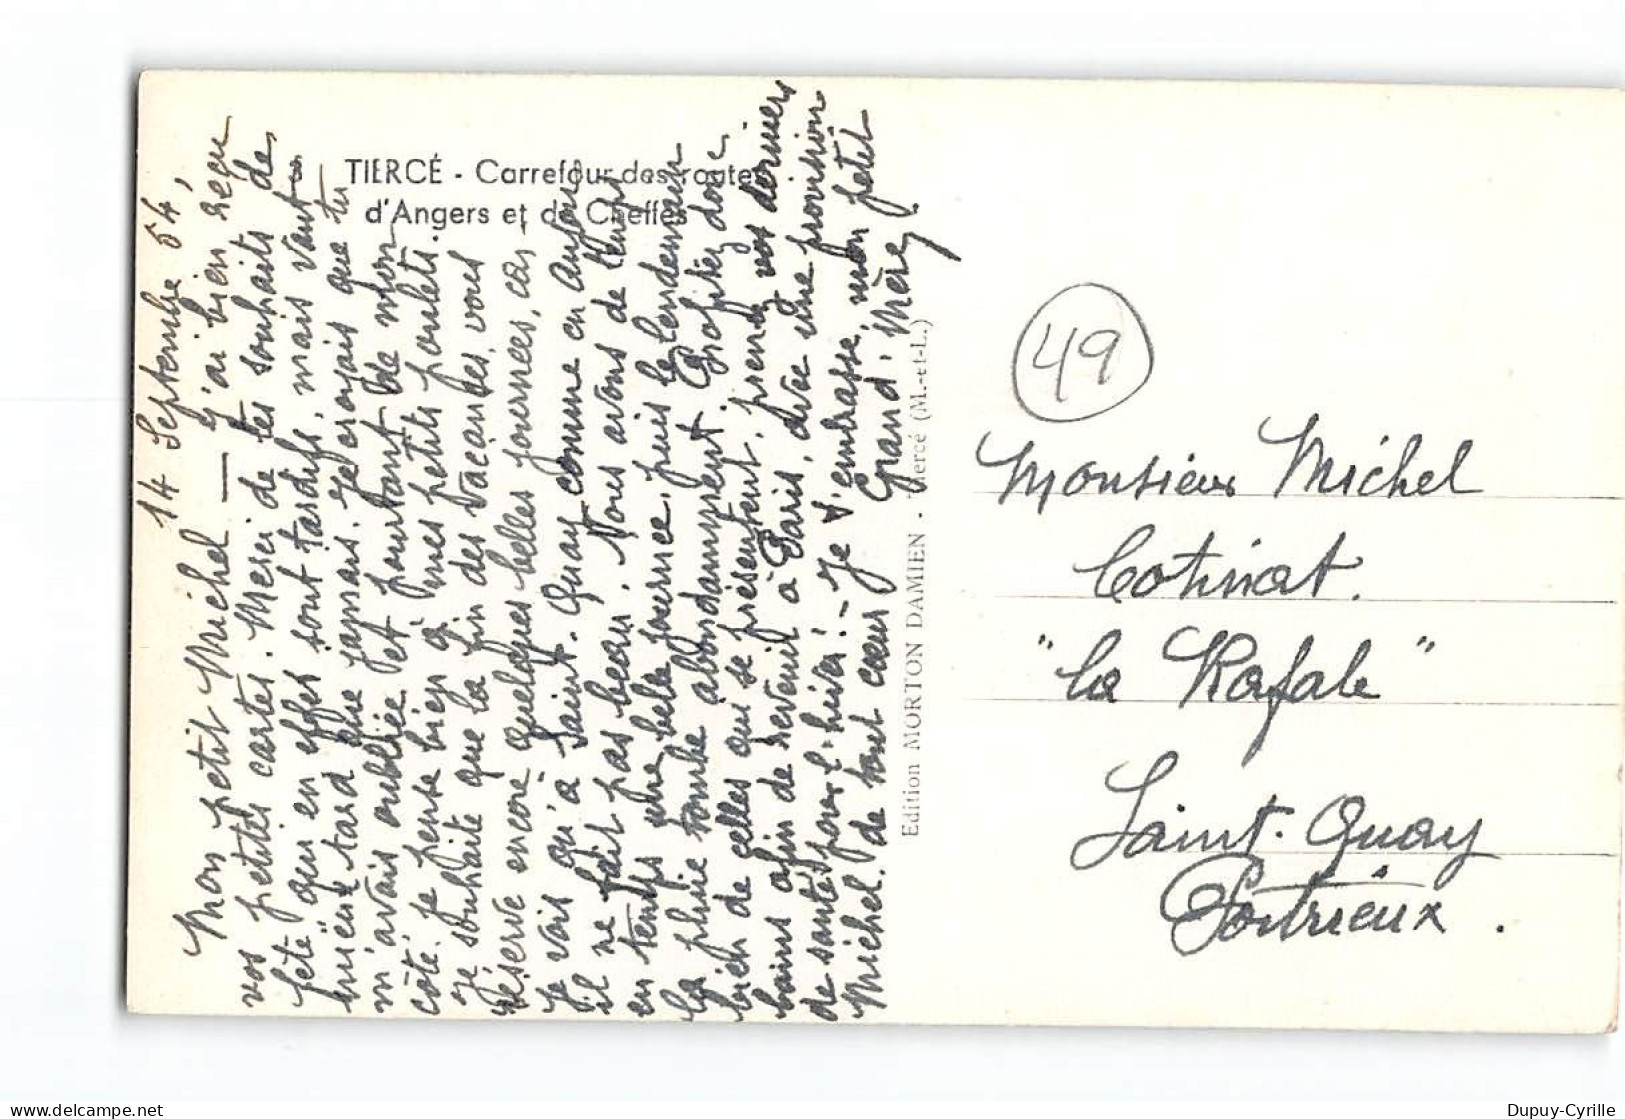 TIERCÉ - Carrefour des routes
d'Angers et de Cheffes
14 Septembre 54,
Mon petit Michel — J'ai bien reçu
vos petites cartes. Merci de tes souhaits de
fête qui en effet sont tardifs, mais vaut
mieux tard que jamais. Je croyais que tu
m'avais oubliée et pourtant de mon
côté je pense bien à mes petits poulets.
Je souhaite que la fin des vacances, vous
réserve encore quelques belles journées, car
Je vois qu'à Saint. Quay comme en Anjou
il ne fait pas beau. Nous avons de temps
en temps une belle journée, puis le lendemain
la pluie tombe abondamment. Profitez donc
bien de celles qui se présentent, prenez vos derniers
bains afin de revenir à Paris, avec une provision
de santé pour l'hiver. - Je t'embrasse, mon petit
Michel. de tout cœur Grand'Mère
Edition MORTON DAMIEN - Tiercé (M.-et-L.)
49
Monsieur Michel
Cotinat.
"La Rafale"
Saint. Quay
Portrieux.
Dupuy-Cyrille